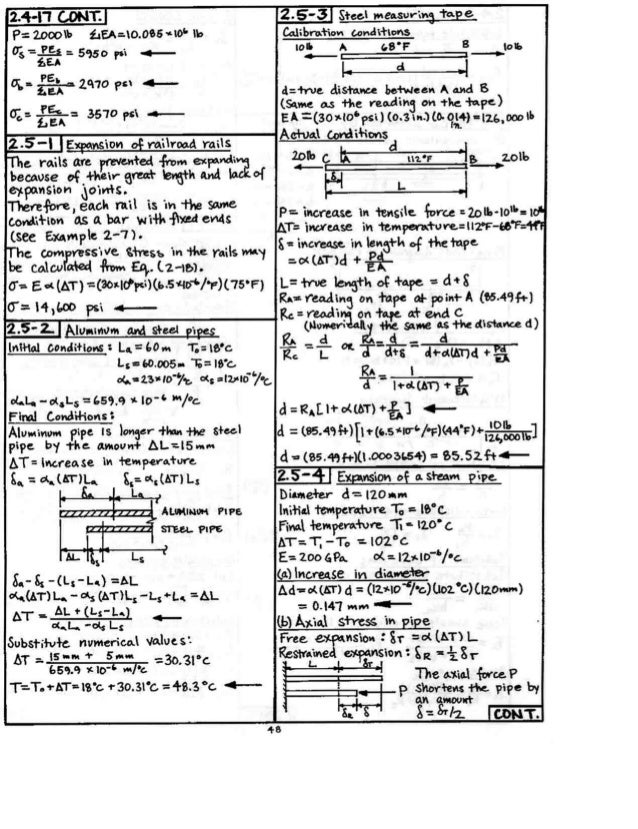 2.4-17 CONT.
P = 2000 lb   ΣEA = 10.085 × 10⁶ lb
σs = PEs / ΣEA = 5950 psi ←
σb = PEb / ΣEA = 2970 psi ←
σc = PEc / ΣEA = 3570 psi ←
2.5-1 Expansion of railroad rails
The rails are prevented from expanding
because of their great length and lack of
expansion joints.
Therefore, each rail is in the same
condition as a bar with fixed ends
(see Example 2-7).
The compressive stress in the rails may
be calculated from Eq. (2-18).
σ = Eα(ΔT) = (30×10⁶ psi)(6.5×10⁻⁶/°F)(75°F)
σ = 14,600 psi ←
2.5-2 Aluminum and steel pipes
Initial conditions: La = 60 m   T₀ = 18°C
Ls = 60.005 m   T₀ = 18°C
αa = 23×10⁻⁶/°C   αs = 12×10⁻⁶/°C
αaLa - αsLs = 659.9 × 10⁻⁶ m/°C
Final Conditions:
Aluminum pipe is longer than the steel
pipe by the amount ΔL = 15 mm
ΔT = increase in temperature
δa = αa(ΔT)La   δs = αs(ΔT)Ls
δa   La
ALUMINUM PIPE
STEEL PIPE
ΔL   δs   Ls
δa - δs - (Ls - La) = ΔL
αa(ΔT)La - αs(ΔT)Ls - Ls + La = ΔL
ΔT = ΔL + (Ls - La) / αaLa - αsLs ←
Substitute numerical values:
ΔT = 15 mm + 5 mm / 659.9 × 10⁻⁶ m/°C = 30.31°C
T = T₀ + ΔT = 18°C + 30.31°C = 48.3°C ←
2.5-3 Steel measuring tape
Calibration conditions
10 lb   A   68°F   B   10 lb
d
d = true distance between A and B
(Same as the reading on the tape)
EA = (30×10⁶ psi)(0.3 in.)(0.014 in.) = 126,000 lb
Actual Conditions
d
20 lb   C   A   112°F   B   20 lb
δ
L
P = increase in tensile force = 20 lb - 10 lb = 10 lb
ΔT = increase in temperature = 112°F - 68°F = 44°F
δ = increase in length of the tape
= α(ΔT)d + Pd / EA
L = true length of tape = d + δ
RA = reading on tape at point A (85.49 ft)
Rc = reading on tape at end C
(Numerically the same as the distance d)
RA / Rc = d / L   or   RA / d = d / d+δ = d / d+α(ΔT)d + Pd/EA
RA / d = 1 / 1+α(ΔT) + P/EA
d = RA[1 + α(ΔT) + P/EA] ←
d = (85.49 ft)[1+(6.5×10⁻⁶/°F)(44°F) + 10 lb / 126,000 lb]
d = (85.49 ft)(1.0003654) = 85.52 ft ←
2.5-4 Expansion of a steam pipe
Diameter d = 120 mm
Initial temperature T₀ = 18°C
Final temperature T₁ = 120°C
ΔT = T₁ - T₀ = 102°C
E = 200 GPa   α = 12×10⁻⁶/°C
(a) Increase in diameter
Δd = α(ΔT)d = (12×10⁻⁶/°C)(102°C)(120mm)
= 0.147 mm ←
(b) Axial stress in pipe
Free expansion: δT = α(ΔT)L
Restrained expansion: δR = ½ δT
L   δT
The axial force P
P   shortens the pipe by
an amount
δR   δ   δ = δT/2   CONT.
48